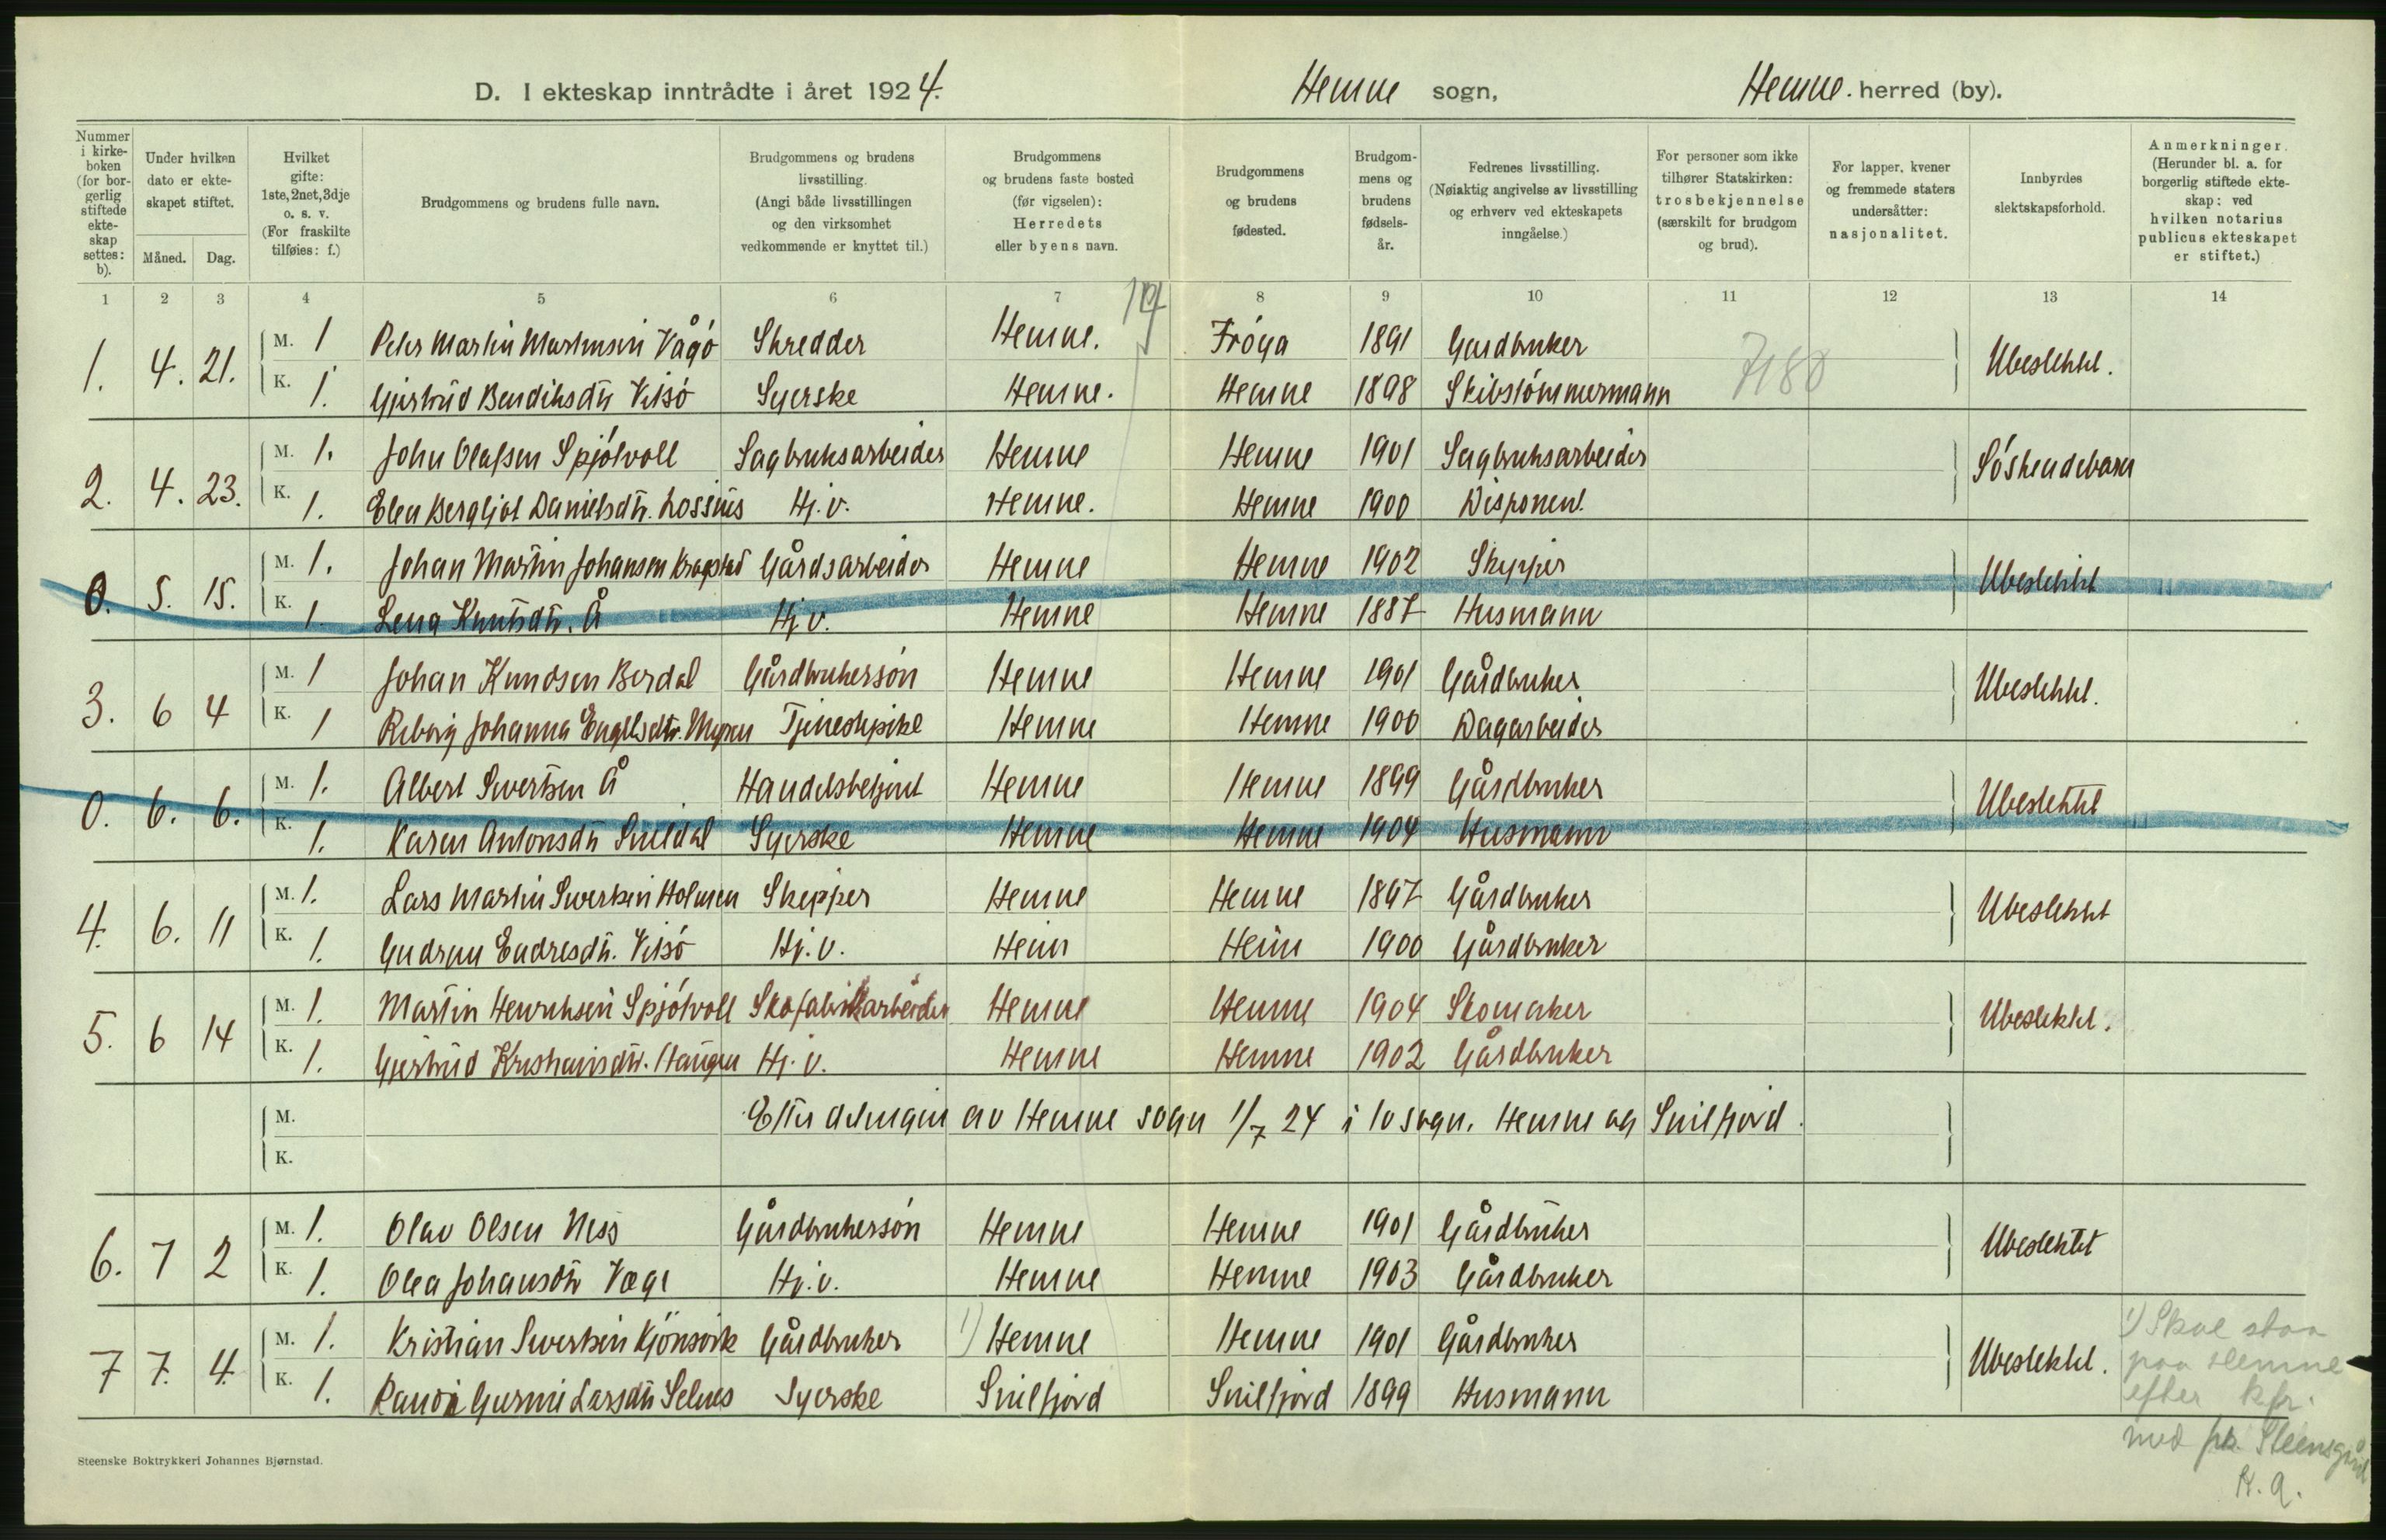 D. I ekteskap inntrådte i året 1924. Hemne sogn, Hemne. herred (by).
Nummer i kirkeboken (for borgerlig stiftede ekteskap settes: b).
Under hvilken dato er ekteskapet stiftet.
Måned. Dag.
Hvilket gifte: 1ste, 2net, 3dje o. s. v. (For fraskilte tilføies: f.)
Brudgommens og brudens fulle navn.
Brudgommens og brudens livsstilling. (Angi både livsstillingen og den virksomhet vedkommende er knyttet til.)
Brudgommens og brudens faste bosted (før vigselen): Herredets eller byens navn.
Brudgommens og brudens fødested.
Brudgommens og brudens fødselsår.
Fedrenes livsstilling. (Nøiaktig angivelse av livsstilling og erhverv ved ekteskapets inngåelse.)
For personer som ikke tilhører Statskirken: trosbekjennelse (særskilt for brudgom og brud).
For lapper, kvener og fremmede staters undersåtter: nasjonalitet.
Innbyrdes slektskapsforhold.
Anmerkninger. (Herunder bl. a. for borgerlig stiftede ekteskap: ved hvilken notarius publicus ekteskapet er stiftet.)
1 2 3 4 5 6 7 8 9 10 11 12 13 14
1. 4. 21. M. 1 Peter Martin Martinsen Vågó Skredder Hemne. Fróya 1891 Gardbruker Ubeslektet.
K. 1. Gjertrud Bendiksdtr Vilsó Syerske Hemne. Hemne 1898 Skibstómmermann 7180
2. 4. 23. M. 1. John Olafsen Spjótvoll Sagbruksarbeider Hemne Hemne 1901 Sagbruksarbeider Sóskendebarn
K. 1. Elen Bergljot Danielsdtr. Lossius Hj. v. Hemne. Hemne 1900 Disponent.
0. 5. 15. M. 1. Johan Martin Johansen Krogstad Gårdsarbeider Hemne Hemne 1902 Skipper Ubeslektet
K. 1. Lena Knutsdtr. Å Hj. v. Hemne Hemne 1887 Husmann
3. 6 4 M. 1 Johan Knudsen Berdal Gårdbrukersón Hemne Hemne 1901 Gårdbruker Ubeslektet.
K. 1 Johanna Engelsdtr. Myren Tjenestpike Hemne Hemne 1900 Dagarbeider
0. 6. 6. M. 1. Albert Sivertsen Å Handelsbetjent Hemne Hemne 1899 Gårdbruker Ubeslektet
K. 1. Karen Antonsdtr Snildal Syerske Hemne Hemne 1904 Husmann
4. 6. 11 M. 1. Lars Martin Sivertsen Holmen Skipper Hemne Hemne 1897 Gårdbruker Ubeslektet
K. 1. Gudrun Endresdtr. Vilsó Hj. v. Heim Heim 1900 Gårdbruker
5. 6 14 M. 1. Martin Henriksen Spjótvoll Skofabrikkarbeider Hemne Hemne 1904 Skomaker Ubeslektet.
K. 1. Gjertrud Kristiansdtr. Haugen Hj. v. Hemne Hemne 1902 Gårdbruker
M. Efter delingen av Hemne sogn 1/7 24 i to sogn. Hemne og Snilfjord.
K.
6. 7 2 M. 1. Olav Olsen Ness Gårdbrukersón Hemne Hemne 1901 Gårdbruker Ubeslektet
K. 1. Olea Johansdtr Vaage Hj. v. Hemne Hemne 1903 Gårdbruker
7 7. 4. M. 1. Kristian Sivertsen Kjönsvik Gårdbruker 1) Hemne Hemne 1901 Gårdbruker Ubeslektet. 1) Skal staa
K. 1. Randi Gurine Larsdtr Selnes Syerske Snilfjord Snilfjord 1899 Husmann paa Hemne
efter kfr.
med pr. Steensgård
K. A.
Steenske Boktrykkeri Johannes Bjørnstad.